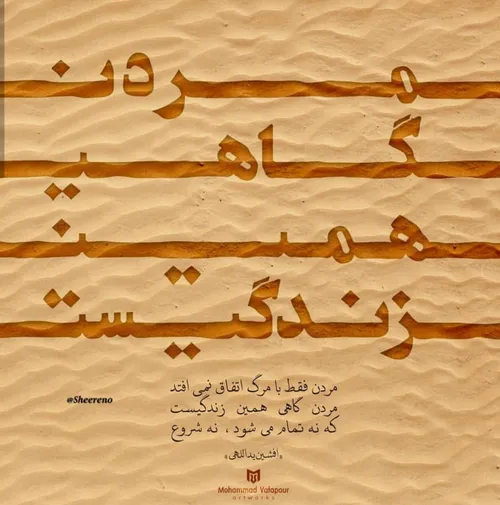 مردن
گاهی
همین
زندگیست
مردن فقط با مرگ اتفاق نمی افتد
مردن گاهی همین زندگیست
که نه تمام می شود ، نه شروع
«افشین یداللهی»
@Sheereno
Mohammad Vatapour
artworks